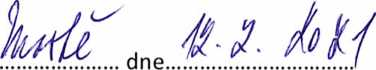 Mostě dne 12. 2. 2021